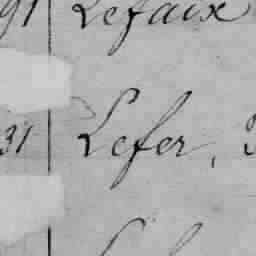 91 Lefaix
31 Lefer,